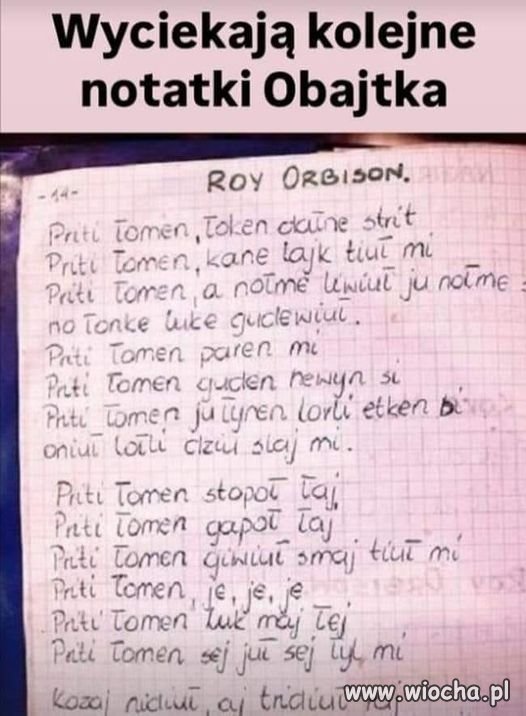 Wyciekają kolejne
notatki Obajtka
-14-
ROY ORBISON.
Priti Łomen, Łoken dałne strit
Priti Łomen, kane łajk tiuł mi
Priti Łomen, a nołme ju nołme
no Łonke luke gudewiuł.
Priti Łomen paren mi
Priti Łomen guden hewyn si
Priti Łomen ju Łyren lorli etken bi
oniuł lołli dziu slaj mi.
Priti Łomen stopoł Łaj
Priti Łomen gapoł Łaj
Priti Łomen giwiuł smaj tiuł mi
Priti Łomen, je, je, je
Priti Łomen luk maj Łej
Priti Łomen sej juł sej Łyl mi
Kozaj nidiuł, aj tridiuł
www.wiocha.pl